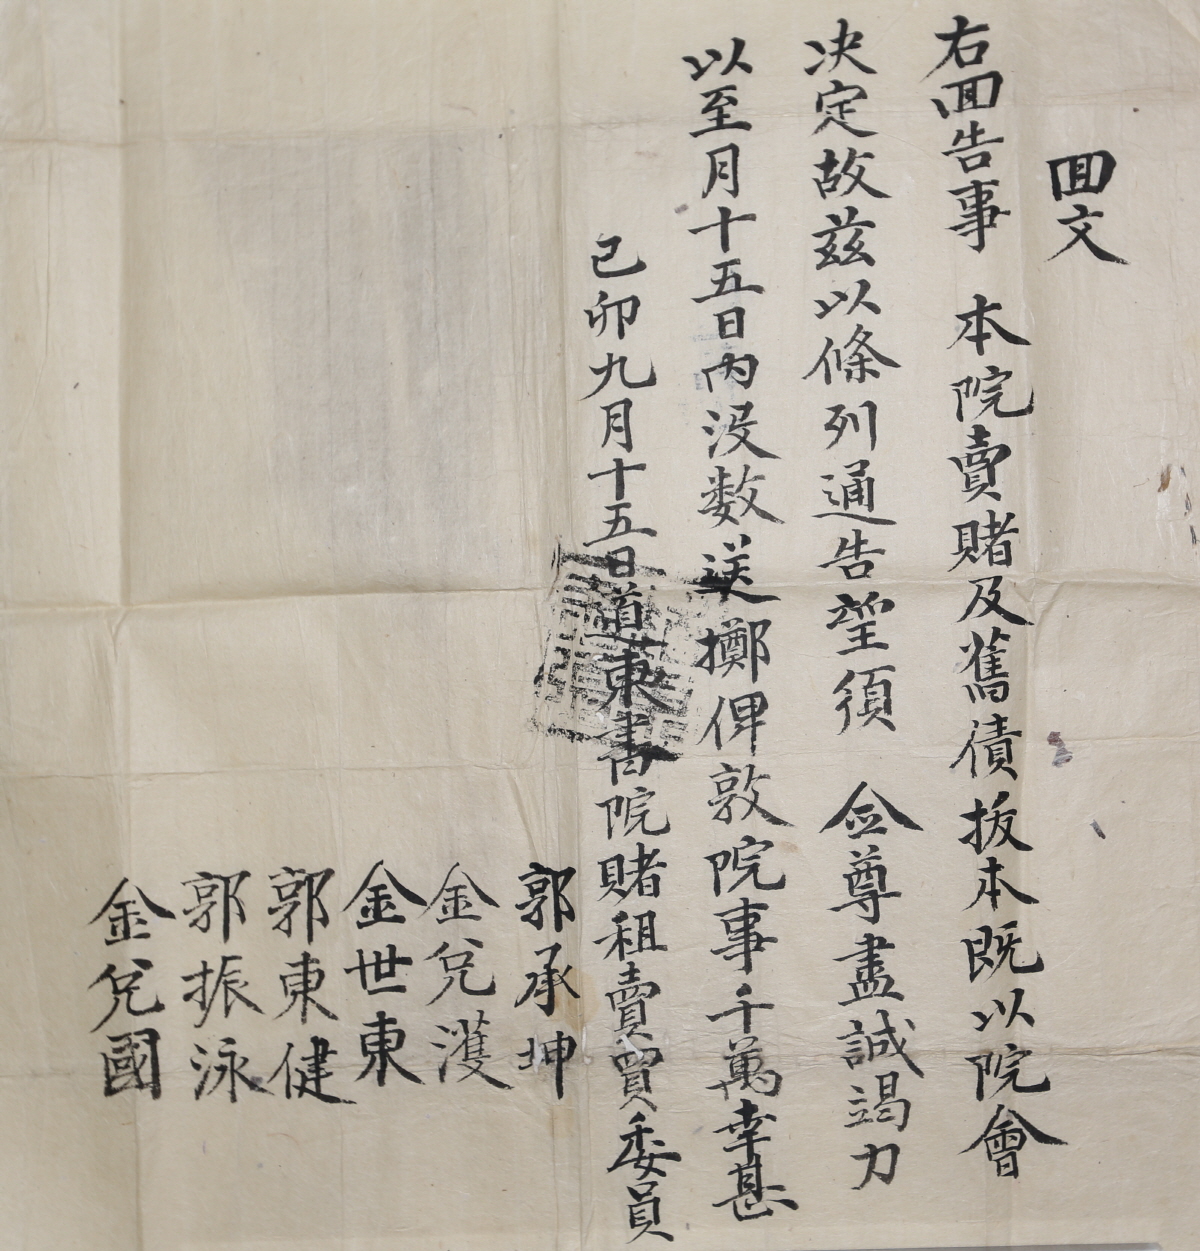 回文
右回告事 本院賣賭及舊債抜本既以院會
決定故茲以條列通告望須 僉尊盡誠竭力
以至月十五日內沒数送擲俾敦院事千萬幸甚
己卯九月十五日道東書院賭租賣買委員
郭承坤
金兌濩
金世東
郭東健
郭振泳
金兌國